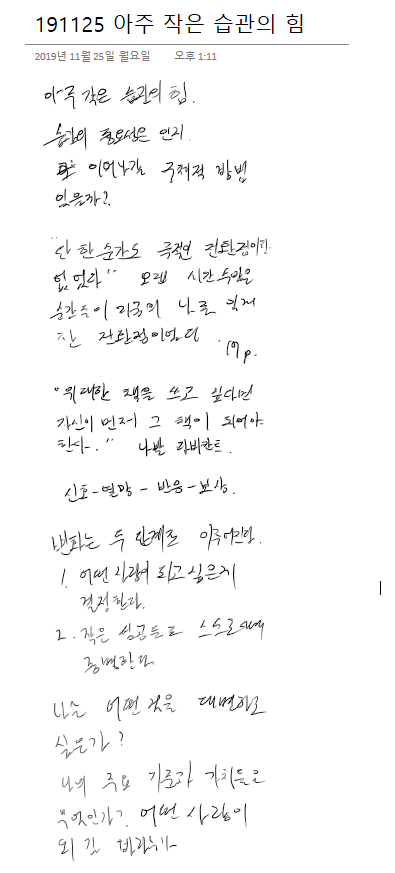 191125 아주 작은 습관의 힘
2019년 11월 25일 월요일 오후 1:11
아주 작은 습관의 힘.
습관의 중요성은 인지.
이어나가는 구체적 방법
있을까?
"단 한순간도 극적인 전환점이란
없었다" 오랜 시간 수많은
순간들이 지금의 나를 있게
한 전환점이었다. 19p.
"위대한 책을 쓰고 싶다면
자신이 먼저 그 책이 되어야
한다." 나발 라비칸트.
신호-열망-반응-보상.
변화는 두 단계로 이루어진다.
1. 어떤 사람이 되고 싶은지
결정한다.
2. 작은 성공들로 스스로에게
증명한다
나는 어떤 것을 대변하고
싶은가?
나의 주요 기준과 가치들은
무엇인가? 어떤 사람이
되길 바라는가